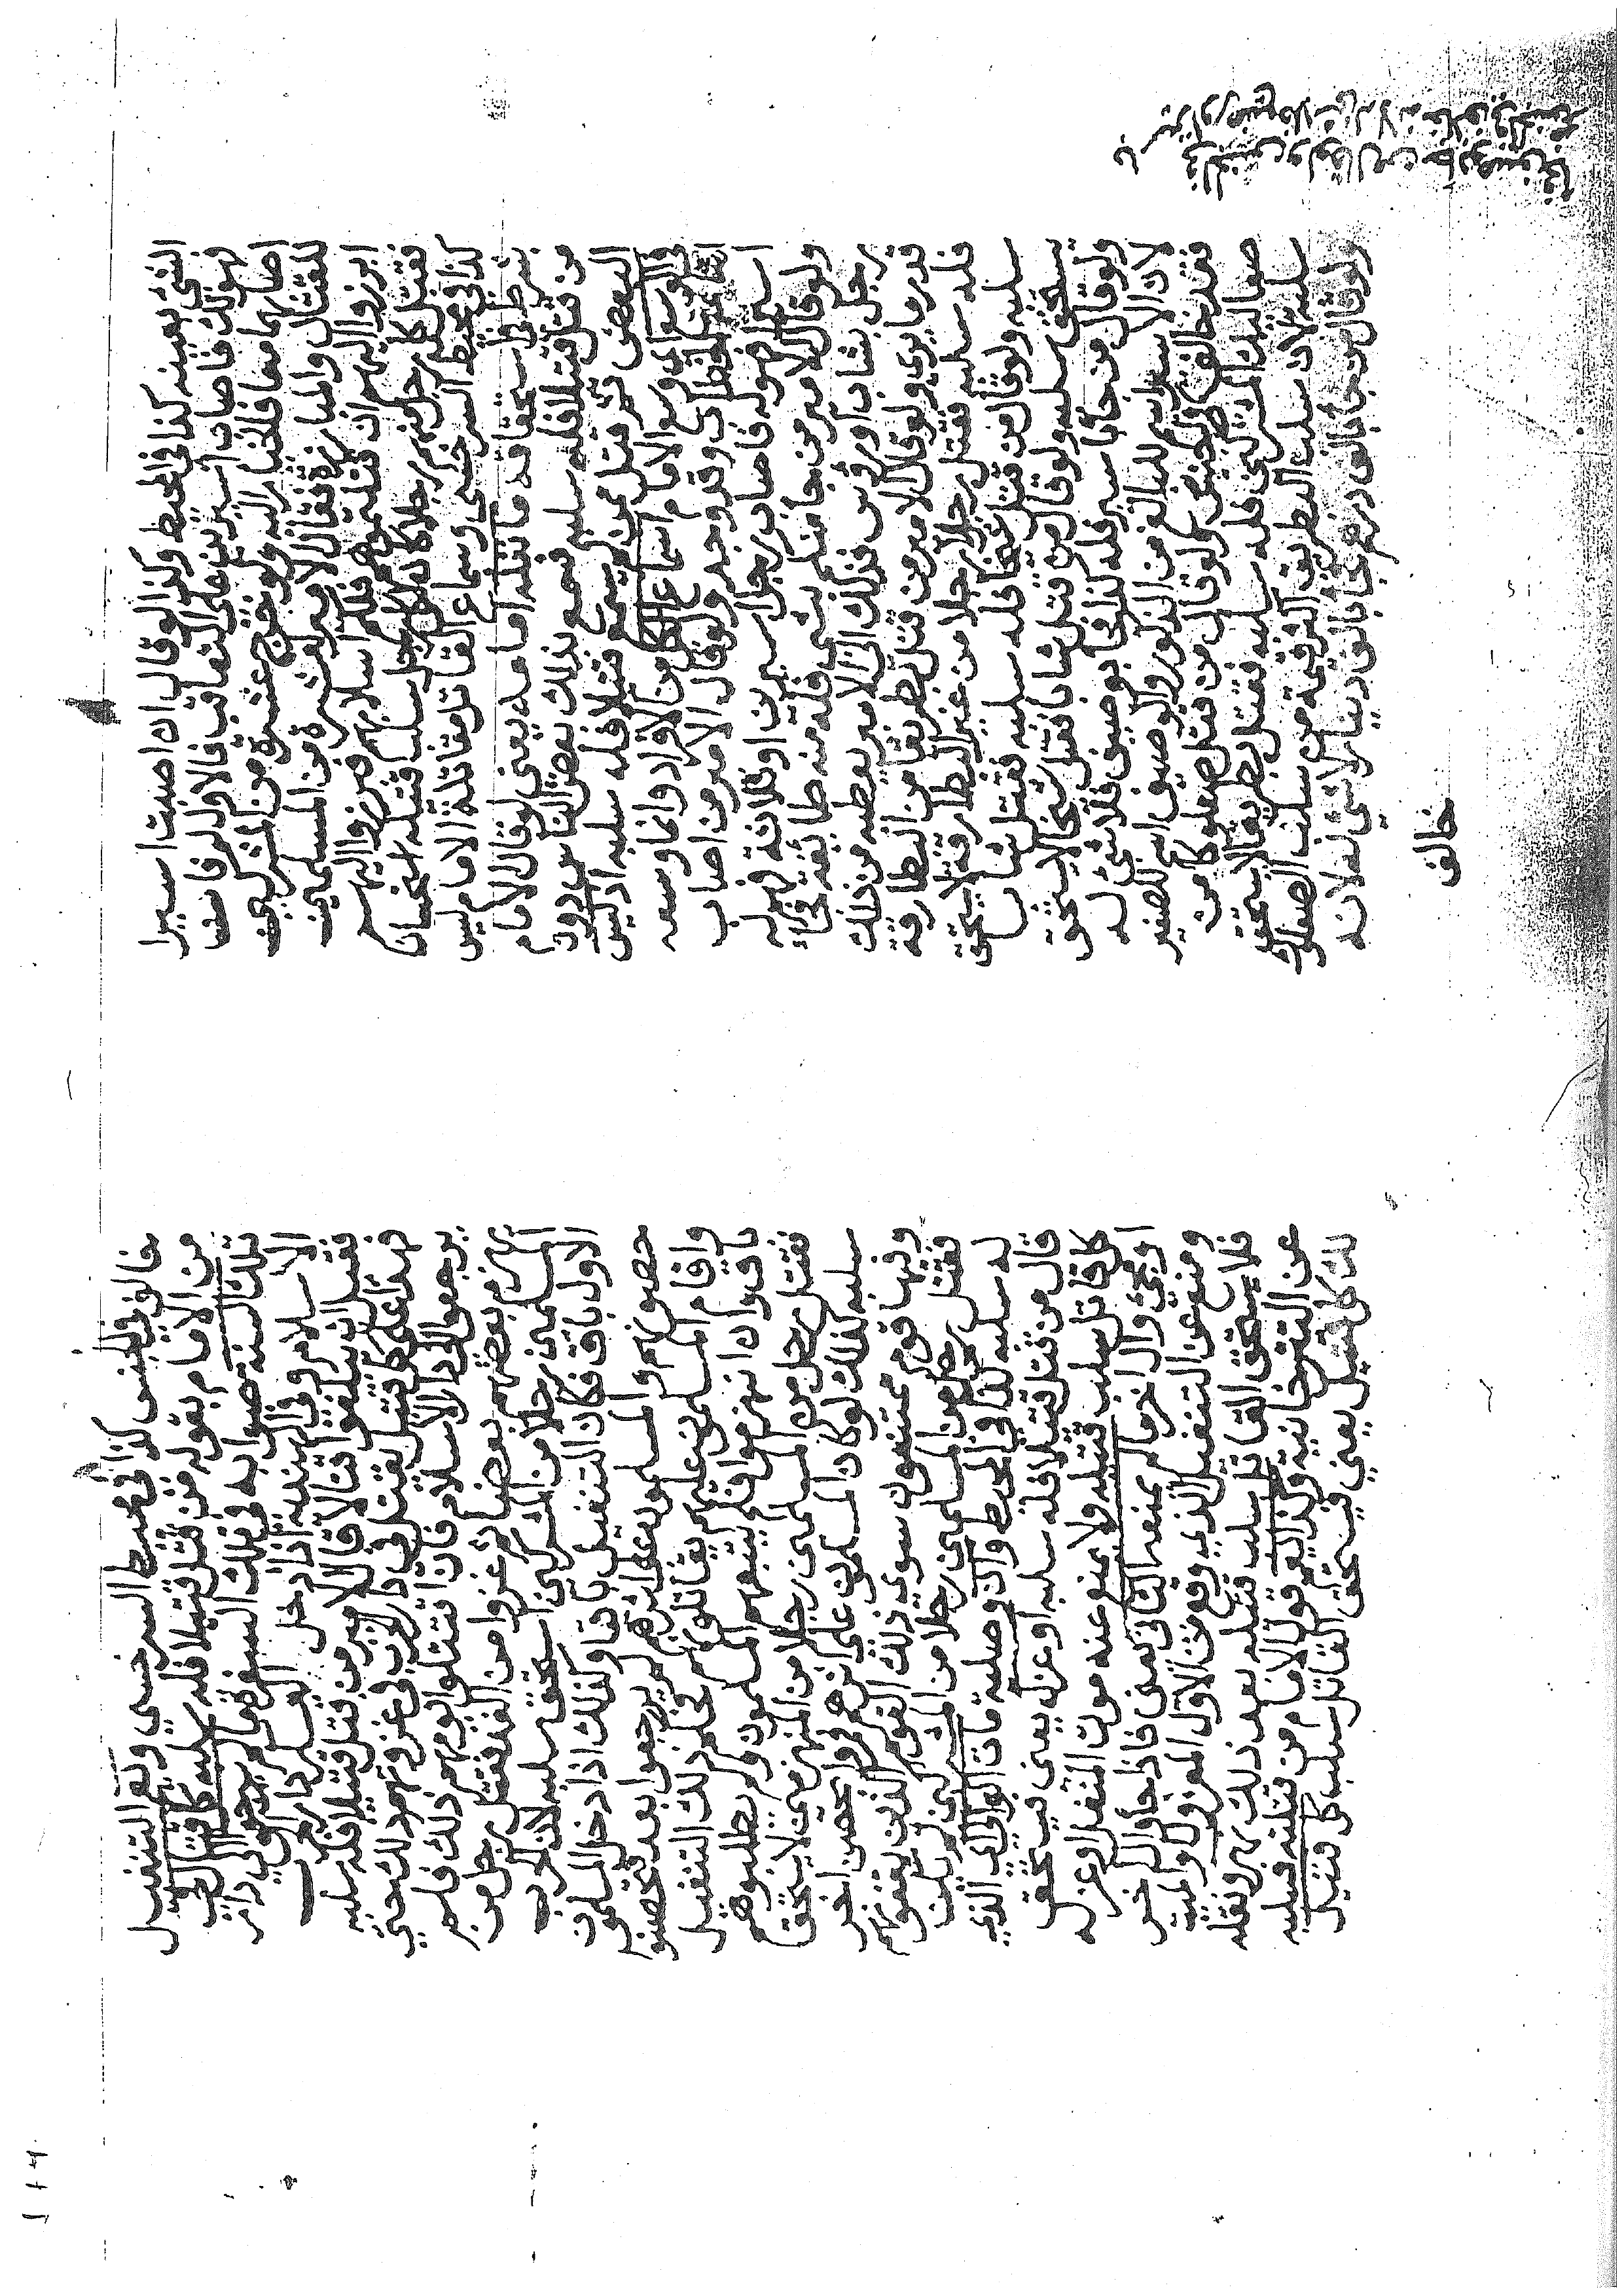 الشي بعينه كذا في المحيط وكذا لو قال ان اصبت اسيرا
فهو لك فاصاب اسيرين على التعاقب فالاول له فان
اصابهما معا فالخيار اليه ولو خرج عشرة من المشركين
للقتال والمبارزة فقال الامير لعشرة من المسلمين
ابرزوا اليهم ان قتلتموهم فلكم اسلابهم فبرزوا اليهم
فقتل كل رجل منهم رجلا كان لكل رجل سلب قتيله استحسانا
كذا في محيط السرخسي وسماع القاتل مقالة الامام ليس
بشرط لاستحقاقه ما نفله امامه يعني لو قال الامام
من قتل قتيلا فله سلبه فسمع بذلك بعض الناس دون
البعض ثم قتل من لم يسمع قتيلا فله سلبه اذ ليس
الامام اسماع الكل من الافراد وانما وسعه
الخطاب وقد وجد ولو قال الامير من اصاب
اسيرا فهو له فاصاب رجل اسيرين او ثلاثة فهم له
ولو قال الامير من جاء منكم بشي فله منه طايفة فجاء
رجل بشاب او رؤس فذلك الى الامير يعطيه من ذلك
قدر ما يرى ولو قال الامير من قتل بطريقا من البطارقة
فله سلبه فقتل رجل رجلا من غير البطارقة لا يستحق
سلبه ولو قال من قتل شيخا فله سلبه فقتل شابا
يستحق سلبه ولو قال من قتل شابا فقتل شيخا لا يستحق
ولو قال من جاء باسير فله كذا فجا بوصيف فلا شي له
لان الاسير اسم للبالغ من الذكور والوصيف اسم للصغير
فقد خالف في الجنس ولو قال من قتل صعلوكا من
صعاليك المشركين فله سلبه فقتل بطريقا لا يستحق
سلبه لان سلب البطريق قيمة من سلب الصعلوك
ولو قال من جاء بالف درهم فجا بالف دينار لا شي له لانه
خالف
خالف في الجنس كذا في محيط السرخسي ويقع التنفيل
من الامام بقوله من قتل قتيلا فله سلبه على كل قتال في
تلك السنة صوابه في تلك السفرة ما لم يرجعوا الى دار
الاسلام وفي الهندية اذا دخل العسكر دار الحرب
فقبل ان يلقوا قتالا قال الامير من قتل قتيلا فله سلبه
فهذا على كل قتيل يقتل في دار الحرب في غزوتهم ذلك حتى
يرجعوا الى دار الاسلام فان اقتتلوا يومهم ذلك فلم
يهزم بعضهم بعضا ثم غزوا من الغد فقتل رجل من
المسلمين رجلا من المشركين استحق سلبه لان الحرب
الاول باق فكان التنفيل باقيا وكذلك اذا دخل المسلمون
حصونهم والمسلمون على اثرهم لم يرجعوا بعد تحصنو
واقام المسلمون عليهم يقاتلونهم فحكم ذلك التنفيل
باق وان انهزموا فلم يتبعهم المسلمون ولم يطلبوهم
فقتل رجل من المسلمين رجلا من المنهزمين لا يستحق
سلبه كذلك لو كان المسلمون على اثرهم فمروا بحصن اخر
وفيها قوم ممتنعون سوى ذلك القوم الذين يقفونهم
فقتل رجل من المسلمين رجلا من المشركين لم يكن
له سلبه كذا في المحيط وان وصلية مات الوالي الذي
قال من قتل قتيلا فله سلبه او عزل يعني يستحق
كل قاتل سلب قتيله ولا يمنع عنه موت المنفل او عزله
او مجي وال اخر ما لم يمنعه الثاني يعني فاذا جاء وال اخر
ومنع عن التنفيل الذي وقع من الاول المعزول او الميت
فلا يستحق القاتل سلب قتيله بعد ذلك نهر ونقله
عن التترخانية وكذا يعم قول الامام من قتلته فسلبه
لك كل قتيل يعني يستحق القاتل سلب كل قتيل